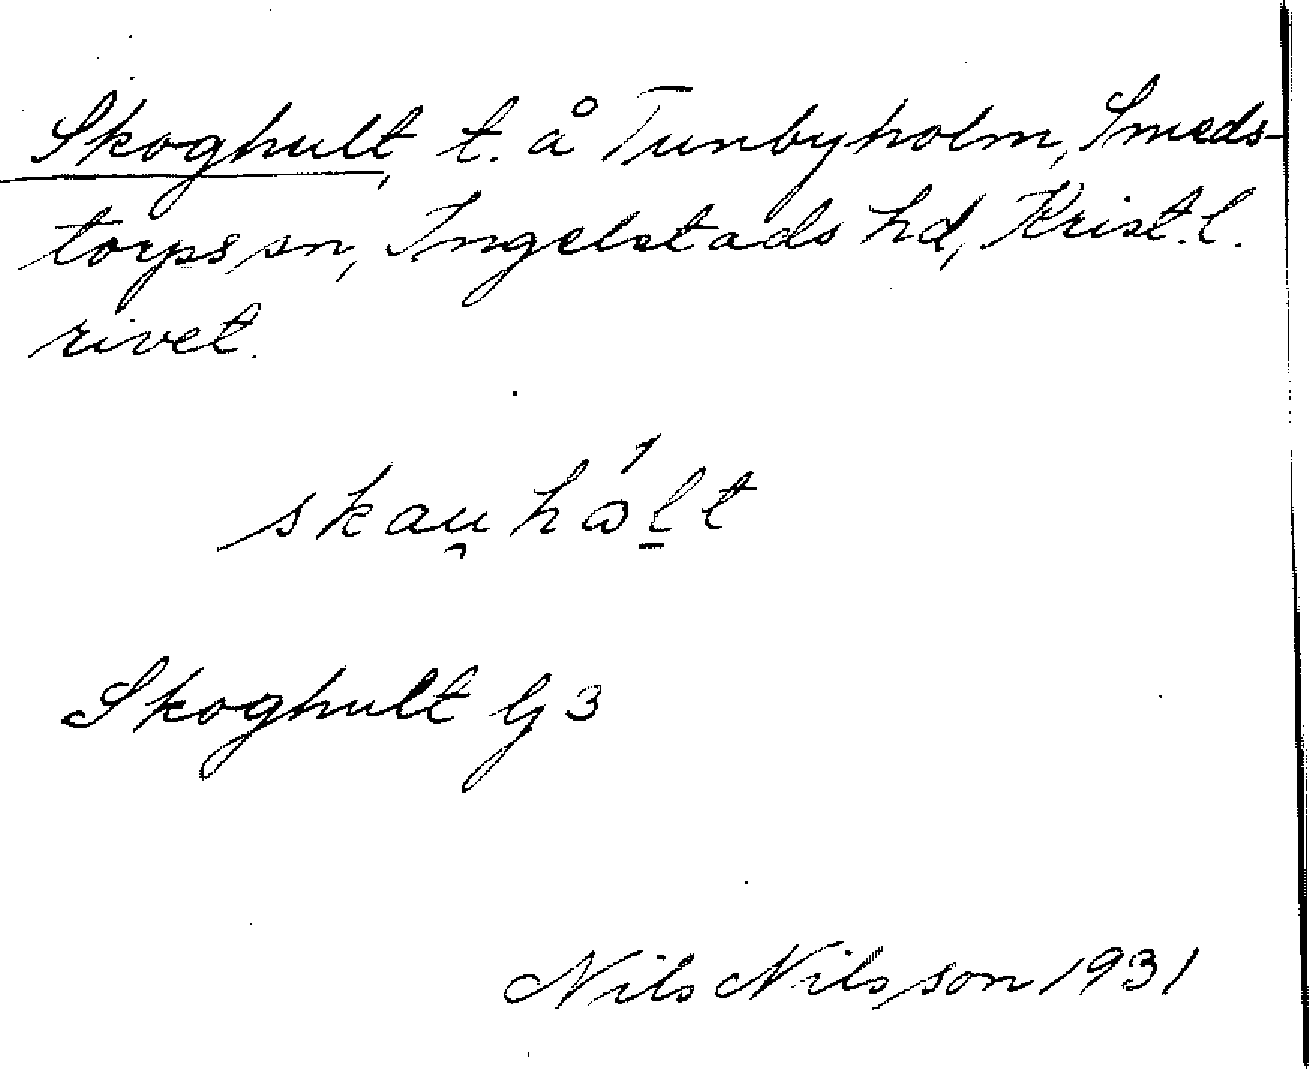 Skoghult, t. å Tunbyholm, Smeds-
torps sn, Ingelstads hd, Krist. l.
rivet.
skau̯hǻl̠t
Skoghult G 3
Nils Nilsson 1931